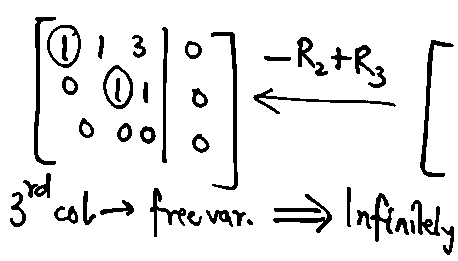 1 1 3 | 0
0 1 1 | 0
0 0 0 | 0
-R₂+R₃
3rd col → free var. ⟹ Infinitely